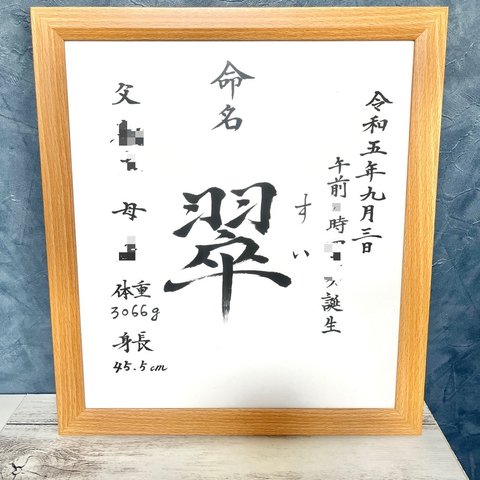 令和五年九月三日
午前 時 誕生
命名
翠
すい
父
母
体重
3066g
身長
45.5cm